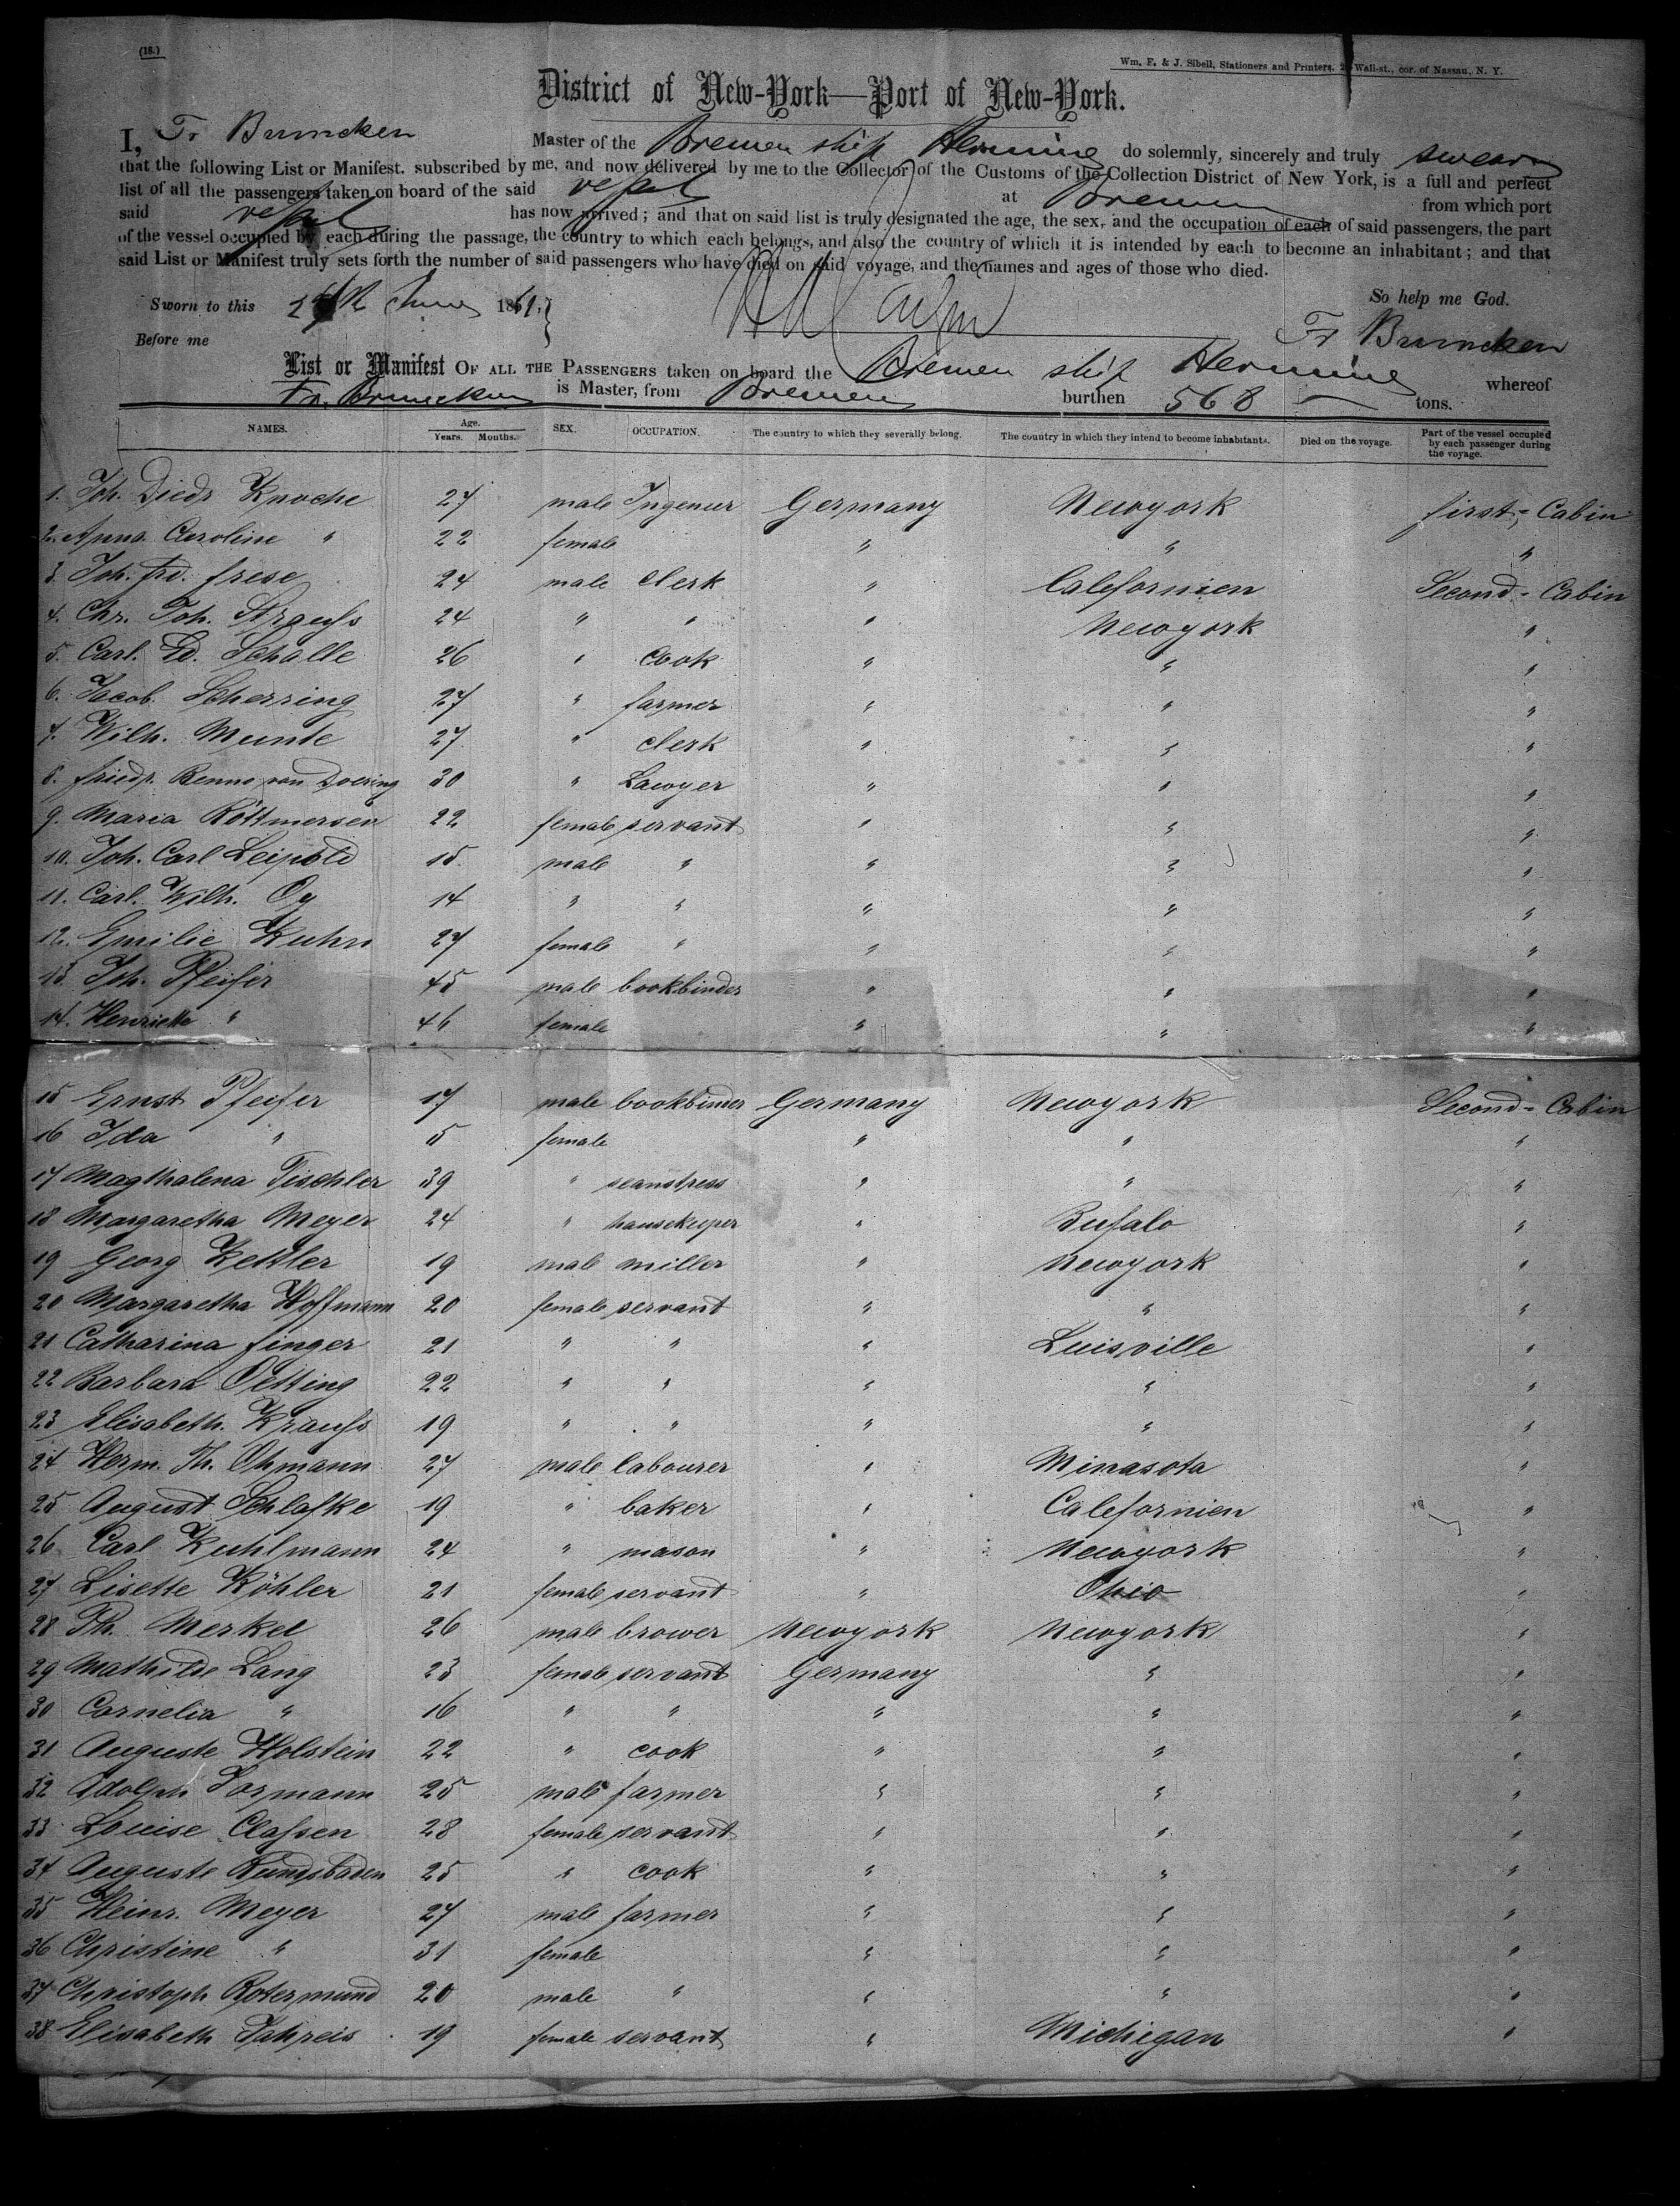 (18.)
Wm. F. & J. Sibell, Stationers and Printers, Wall-st., cor. of Nassau, N. Y.
District of New-York—Port of New-York.
I, Fr Bruncken Master of the Bremen ship Hermine do solemnly, sincerely and truly swear
that the following List or Manifest, subscribed by me, and now delivered by me to the Collector of the Customs of the Collection District of New York, is a full and perfect
list of all the passengers taken on board of the said vessel at Bremen from which port
said vessel has now arrived; and that on said list is truly designated the age, the sex, and the occupation of each of said passengers, the part
of the vessel occupied by each during the passage, the country to which each belongs, and also the country of which it is intended by each to become an inhabitant; and that
said List or Manifest truly sets forth the number of said passengers who have died on said voyage, and the names and ages of those who died.
Sworn to this June 1861. So help me God.
Before me Fr Bruncken
List or Manifest OF ALL THE PASSENGERS taken on board the Bremen ship Hermine whereof
Fr. Bruncken is Master, from Bremen burthen 568 tons.
NAMES. Age. Years. Months. SEX. OCCUPATION. The country to which they severally belong. The country in which they intend to become inhabitants. Died on the voyage. Part of the vessel occupied by each passenger during the voyage.
1. Joh. Diedr Knoche 27 male Ingenieur Germany Newyork first-Cabin
2. Anna Caroline " 22 female " " "
3. Joh. frd. frese 24 male Clerk " Californien Second-Cabin
4. Chr. Joh. Strauss 24 " " " Newyork "
5. Carl. Ed. Schalle 26 " Cook " " "
6. Jacob Scherring 27 " farmer " " "
7. Wilh. Munte 27 " clerk " " "
8. friedr. Benno von Doering 30 " Lawyer " " "
9. Maria Röttmersen 22 female servant " " "
10. Joh. Carl Leipold 15 male " " " "
11. Carl. Wilh. Oy 14 " " " " "
12. Emilie Kuhn 27 female " " " "
13. Joh. Pfeifer 45 male bookbinder " " "
14. Henriette " 46 female " " "
15 Ernst Pfeifer 17 male bookbinder Germany Newyork Second-Cabin
16 Ida " 15 female " " "
17 Magthalena Tischler 39 " seamstress " " "
18 Margaretha Meyer 24 " hausekeeper " Bufalo "
19 Georg Kettler 19 male miller " Newyork "
20 Margaretha Hoffmann 20 female servant " " "
21 Catharina finger 21 " " " Luisville "
22 Barbara Oetting 22 " " " " "
23 Elisabeth. Krauss 19 " " " " "
24 Herm. Th. Ohmann 27 male labourer " Minasota "
25 August Schlafke 19 " baker " Calefornien "
26 Carl Kuhlmann 24 " mason " Newyork "
27 Lisette Köhler 21 female servant " Ohio "
28 Ph. Merkel 26 male brower Newyork Newyork "
29 Mathilde Lang 23 female servant Germany " "
30 Cornelia " 16 " " " " "
31 Auguste Holstein 22 " cook " " "
32 Adolph Sormann 25 male farmer " " "
33 Louise Classen 28 female servant " " "
34 Auguste 25 " cook " " "
35 Heinr. Meyer 27 male farmer " " "
36 Christine " 31 female " " "
37 Christoph Rotermund 20 male " " " "
38 Elisabeth Jahreis 19 female servant " Michegan "